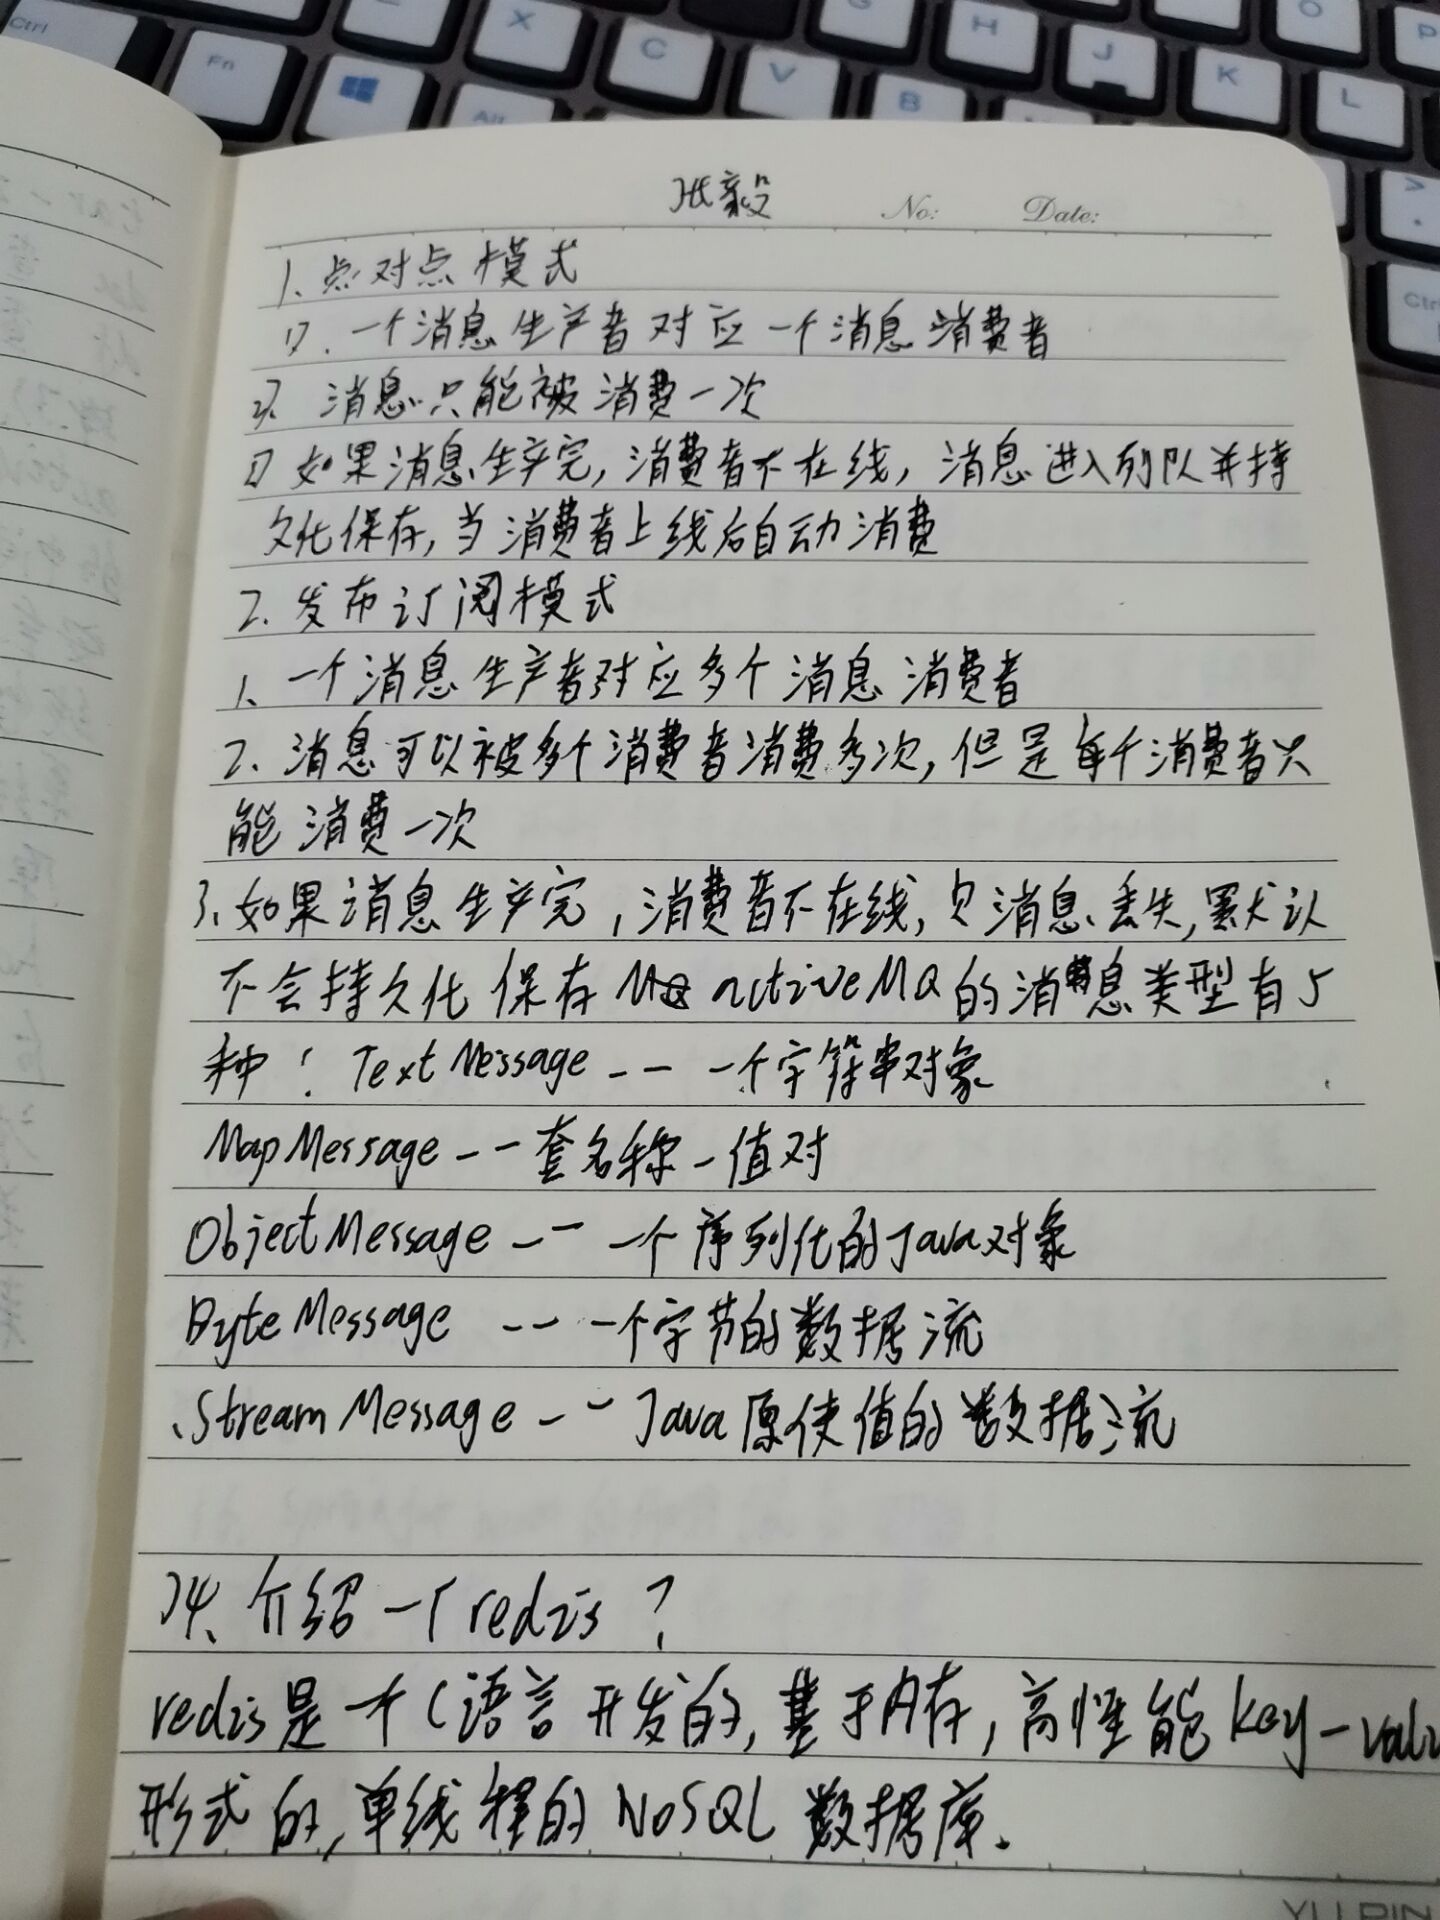 Ctrl
Fn
Alt
X
C
V
B
G
H
J
K
L
O
P
张毅 No: Date:
1、点对点模式
1). 一个消息生产者对应一个消息消费者
2). 消息只能被消费一次
3) 如果消息生产完,消费者不在线,消息进入列队并持
久化保存,当消费者上线后自动消费
2. 发布订阅模式
1、一个消息生产者对应多个消息消费者
2、消息可以被多个消费者消费多次,但是每个消费者只
能消费一次
3、如果消息生产完,消费者不在线,则消息丢失,默认
不会持久化保存 activeMQ的消息类型有5
种: TextMessage -- 一个字符串对象
MapMessage -- 一套名称-值对
ObjectMessage -- 一个序列化的Java对象
ByteMessage -- 一个字节的数据流
StreamMessage -- Java原使值的数据流
24、介绍一下redis?
redis是一个C语言开发的,基于内存,高性能key-valu
形式的,单线程的NoSQL数据库.